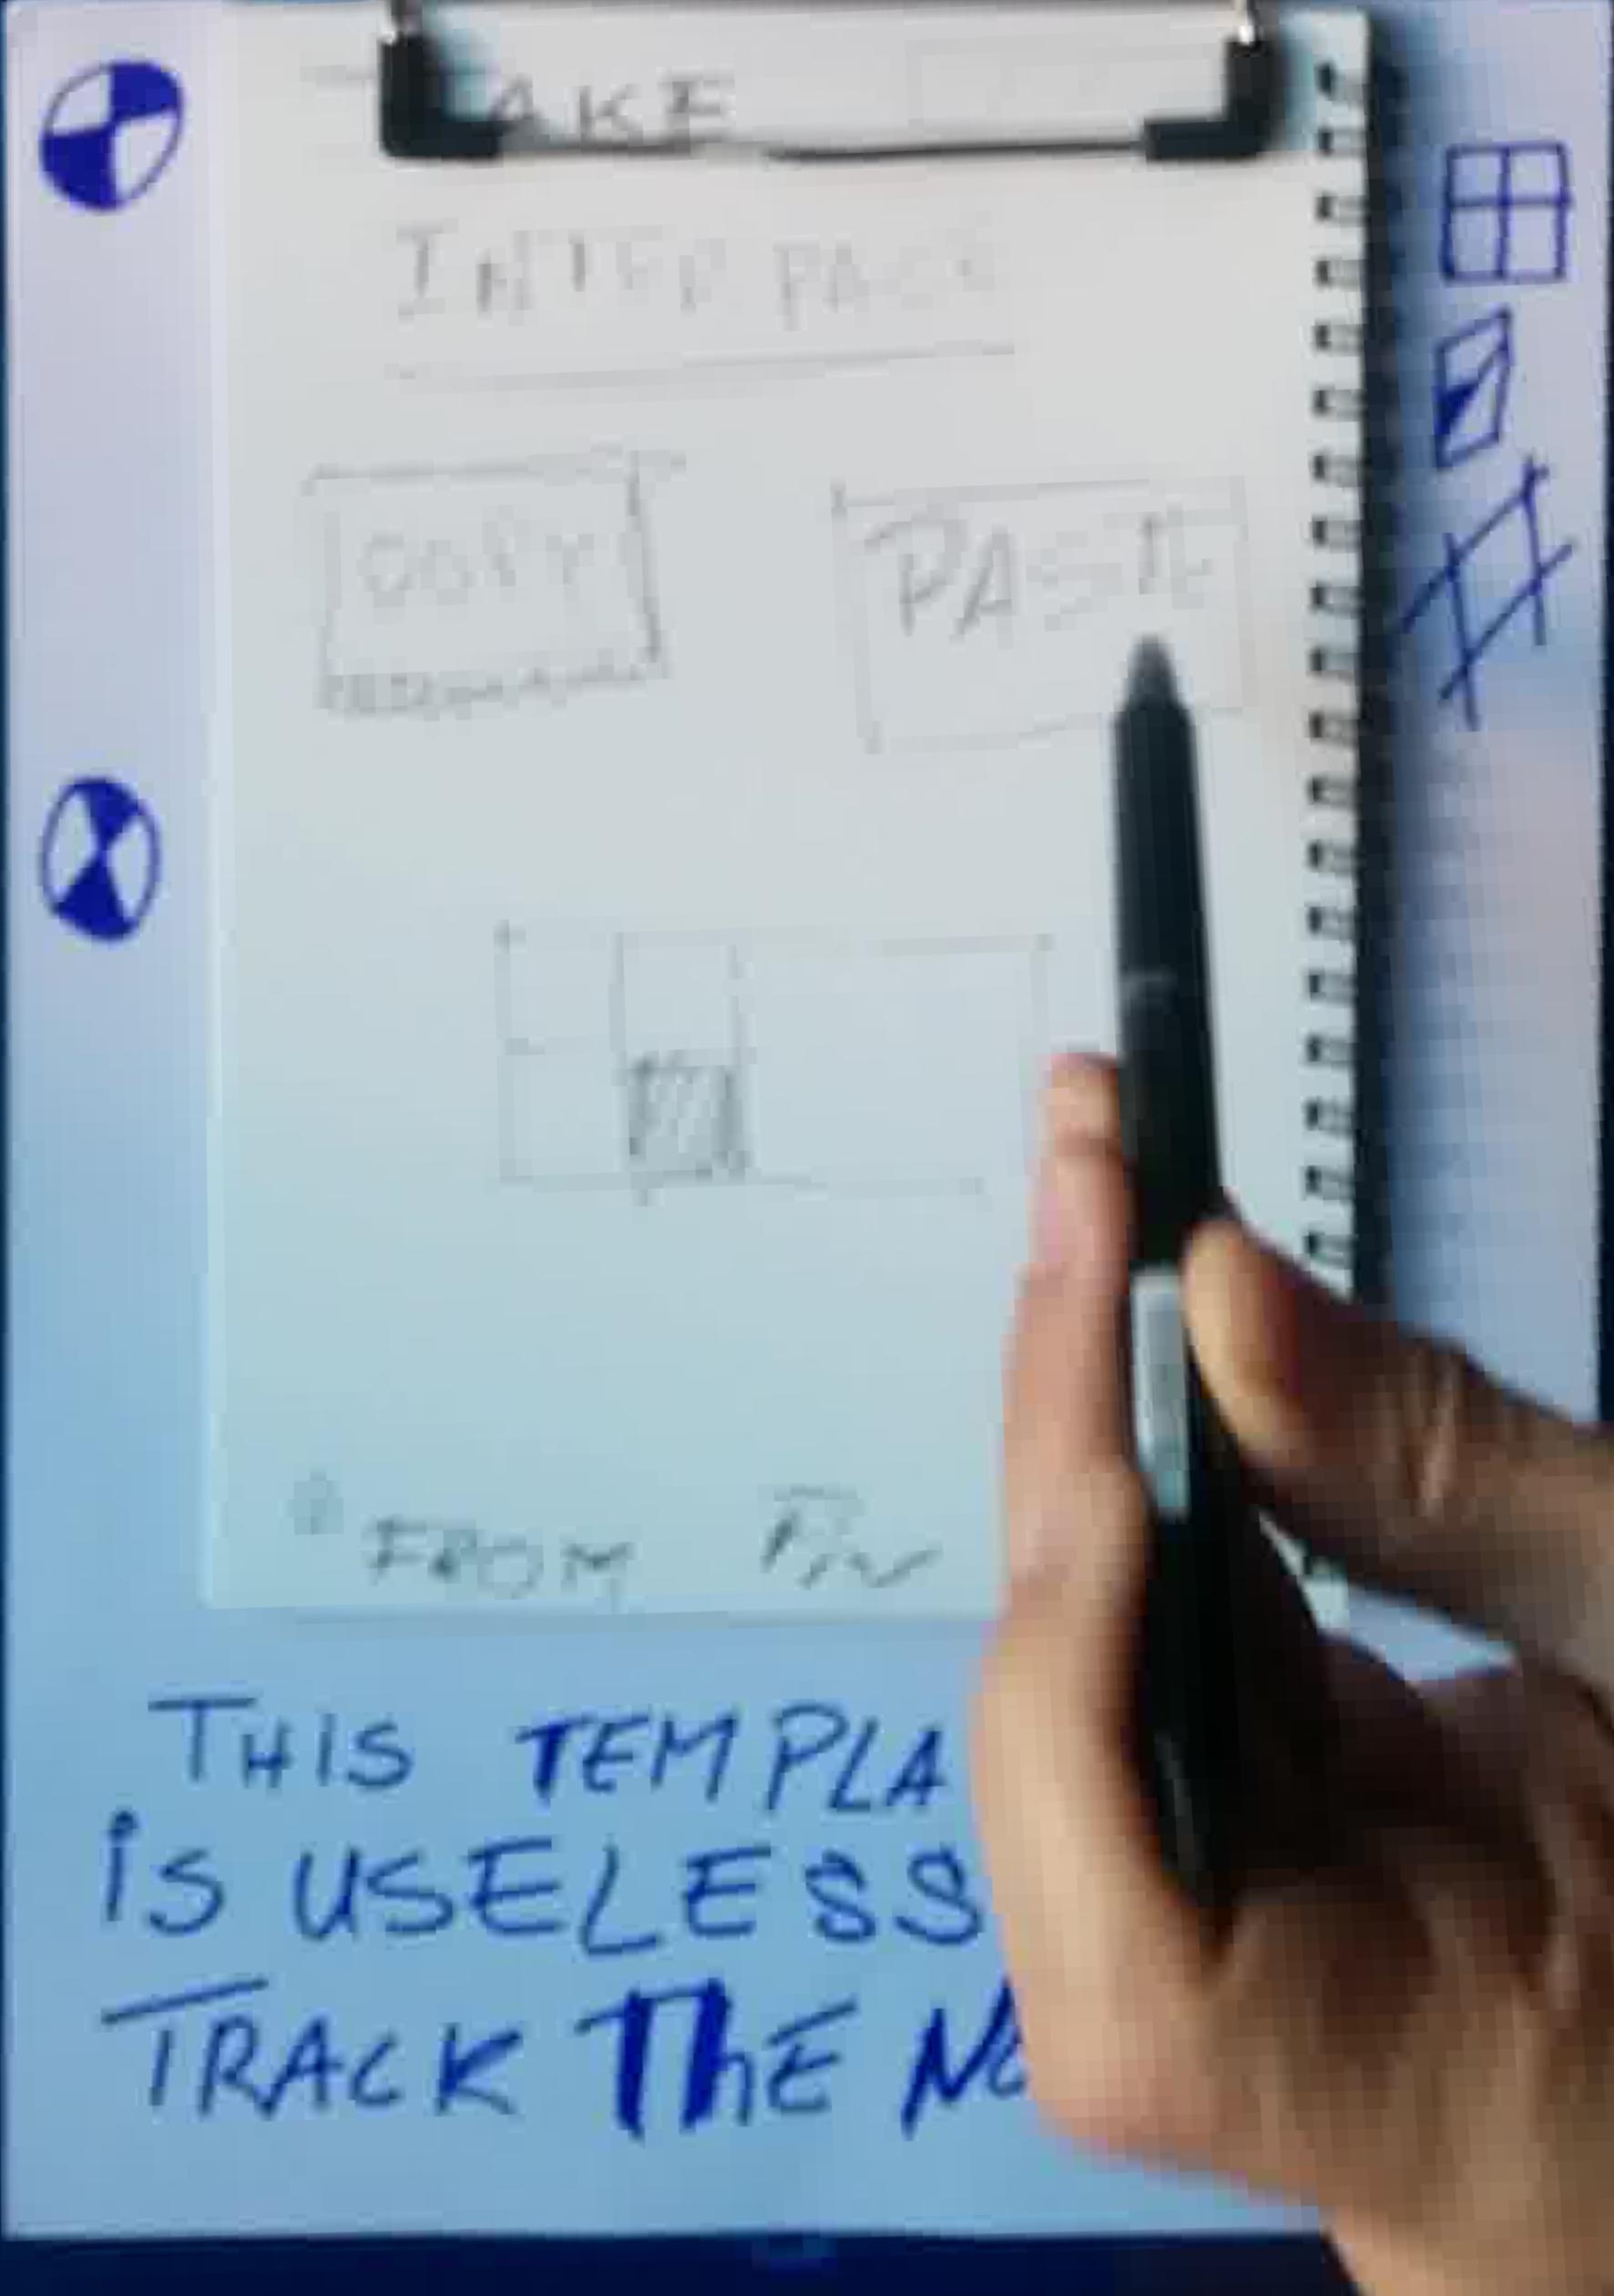 AKE
INTERFACE
COPY PASTE
FROM
THIS TEMPLA
iS USELESS
TRACK ThE